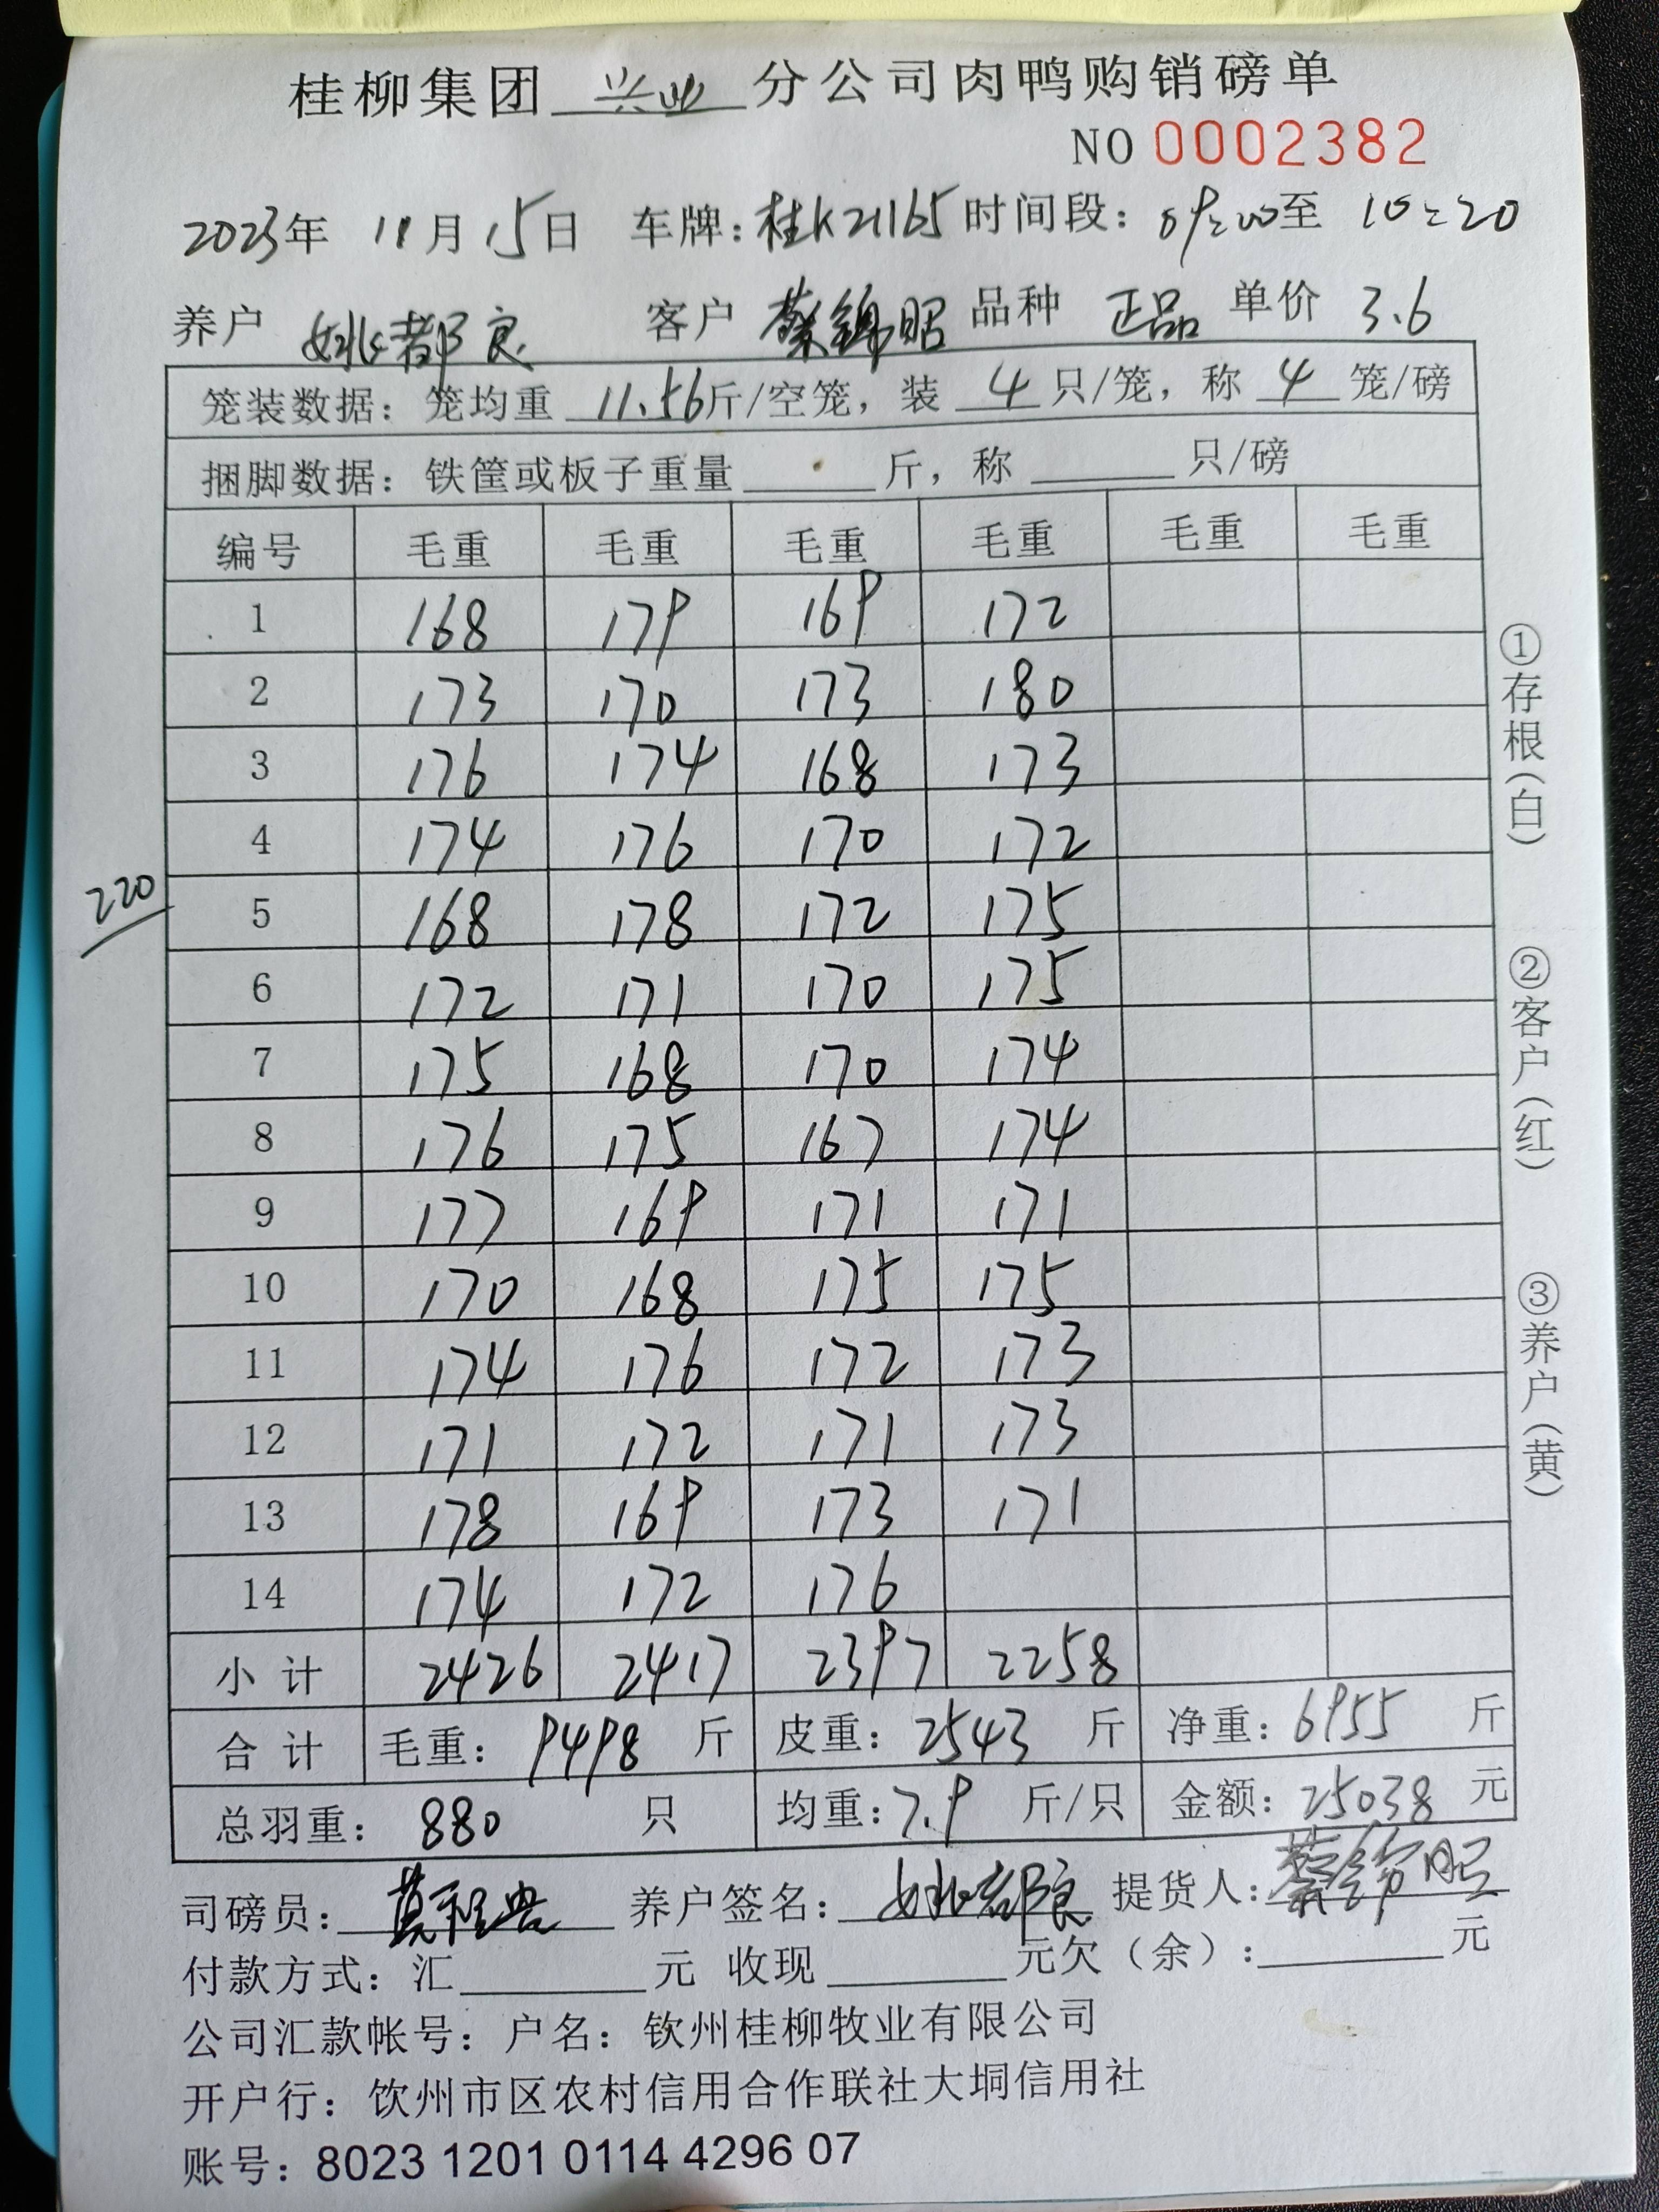 桂柳集团 兴业 分公司肉鸭购销磅单
NO 0002382
2023年 11月 15日 车牌:桂K21165 时间段:09:00至 10:20
养户 姚都良 客户 蔡锦昭 品种 正品 单价 3.6
笼装数据:笼均重 11.56斤/空笼,装 4 只/笼,称 4 笼/磅
捆脚数据:铁筐或板子重量 斤,称 只/磅
编号 毛重 毛重 毛重 毛重 毛重 毛重
1 168 179 169 172
2 173 170 173 180
3 176 174 168 173
4 174 176 170 172
220
5 168 178 172 175
6 172 171 170 175
7 175 168 170 174
8 176 175 167 174
9 177 169 171 171
10 170 168 175 175
11 174 176 172 173
12 171 172 171 173
13 178 169 173 171
14 174 172 176
小计 2426 2417 2397 2258
合计 毛重:9498 斤 皮重:2543 斤 净重:6955 斤
总羽重:880 只 均重:7.9 斤/只 金额:25038 元
司磅员: 养户签名:姚都良 提货人:蔡锦昭
付款方式:汇 元 收现 元欠(余): 元
公司汇款帐号:户名:钦州桂柳牧业有限公司
开户行:钦州市区农村信用合作联社大垌信用社
账号:8023 1201 0114 4296 07
①存根(白)
②客户(红)
③养户(黄)